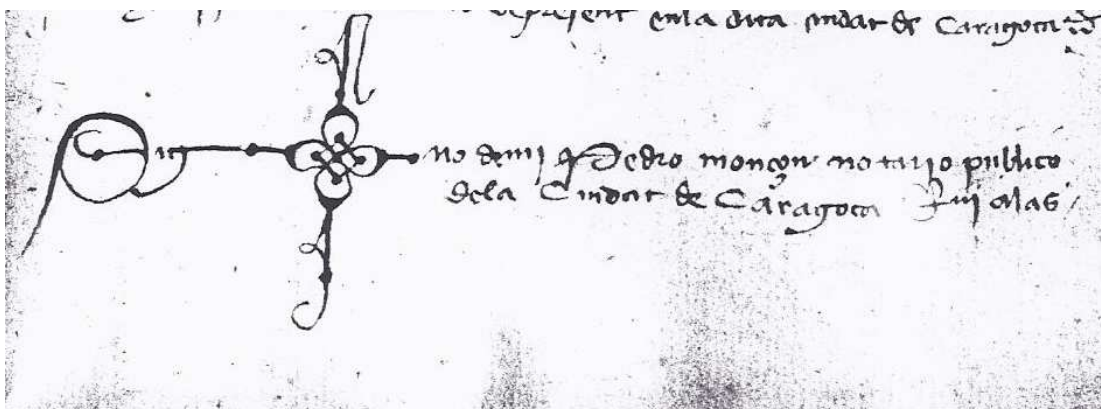 present en la dita ciudat de Caragoca
Sig no de mj Pedro monçon notario publico
dela Ciudat de Caragoca